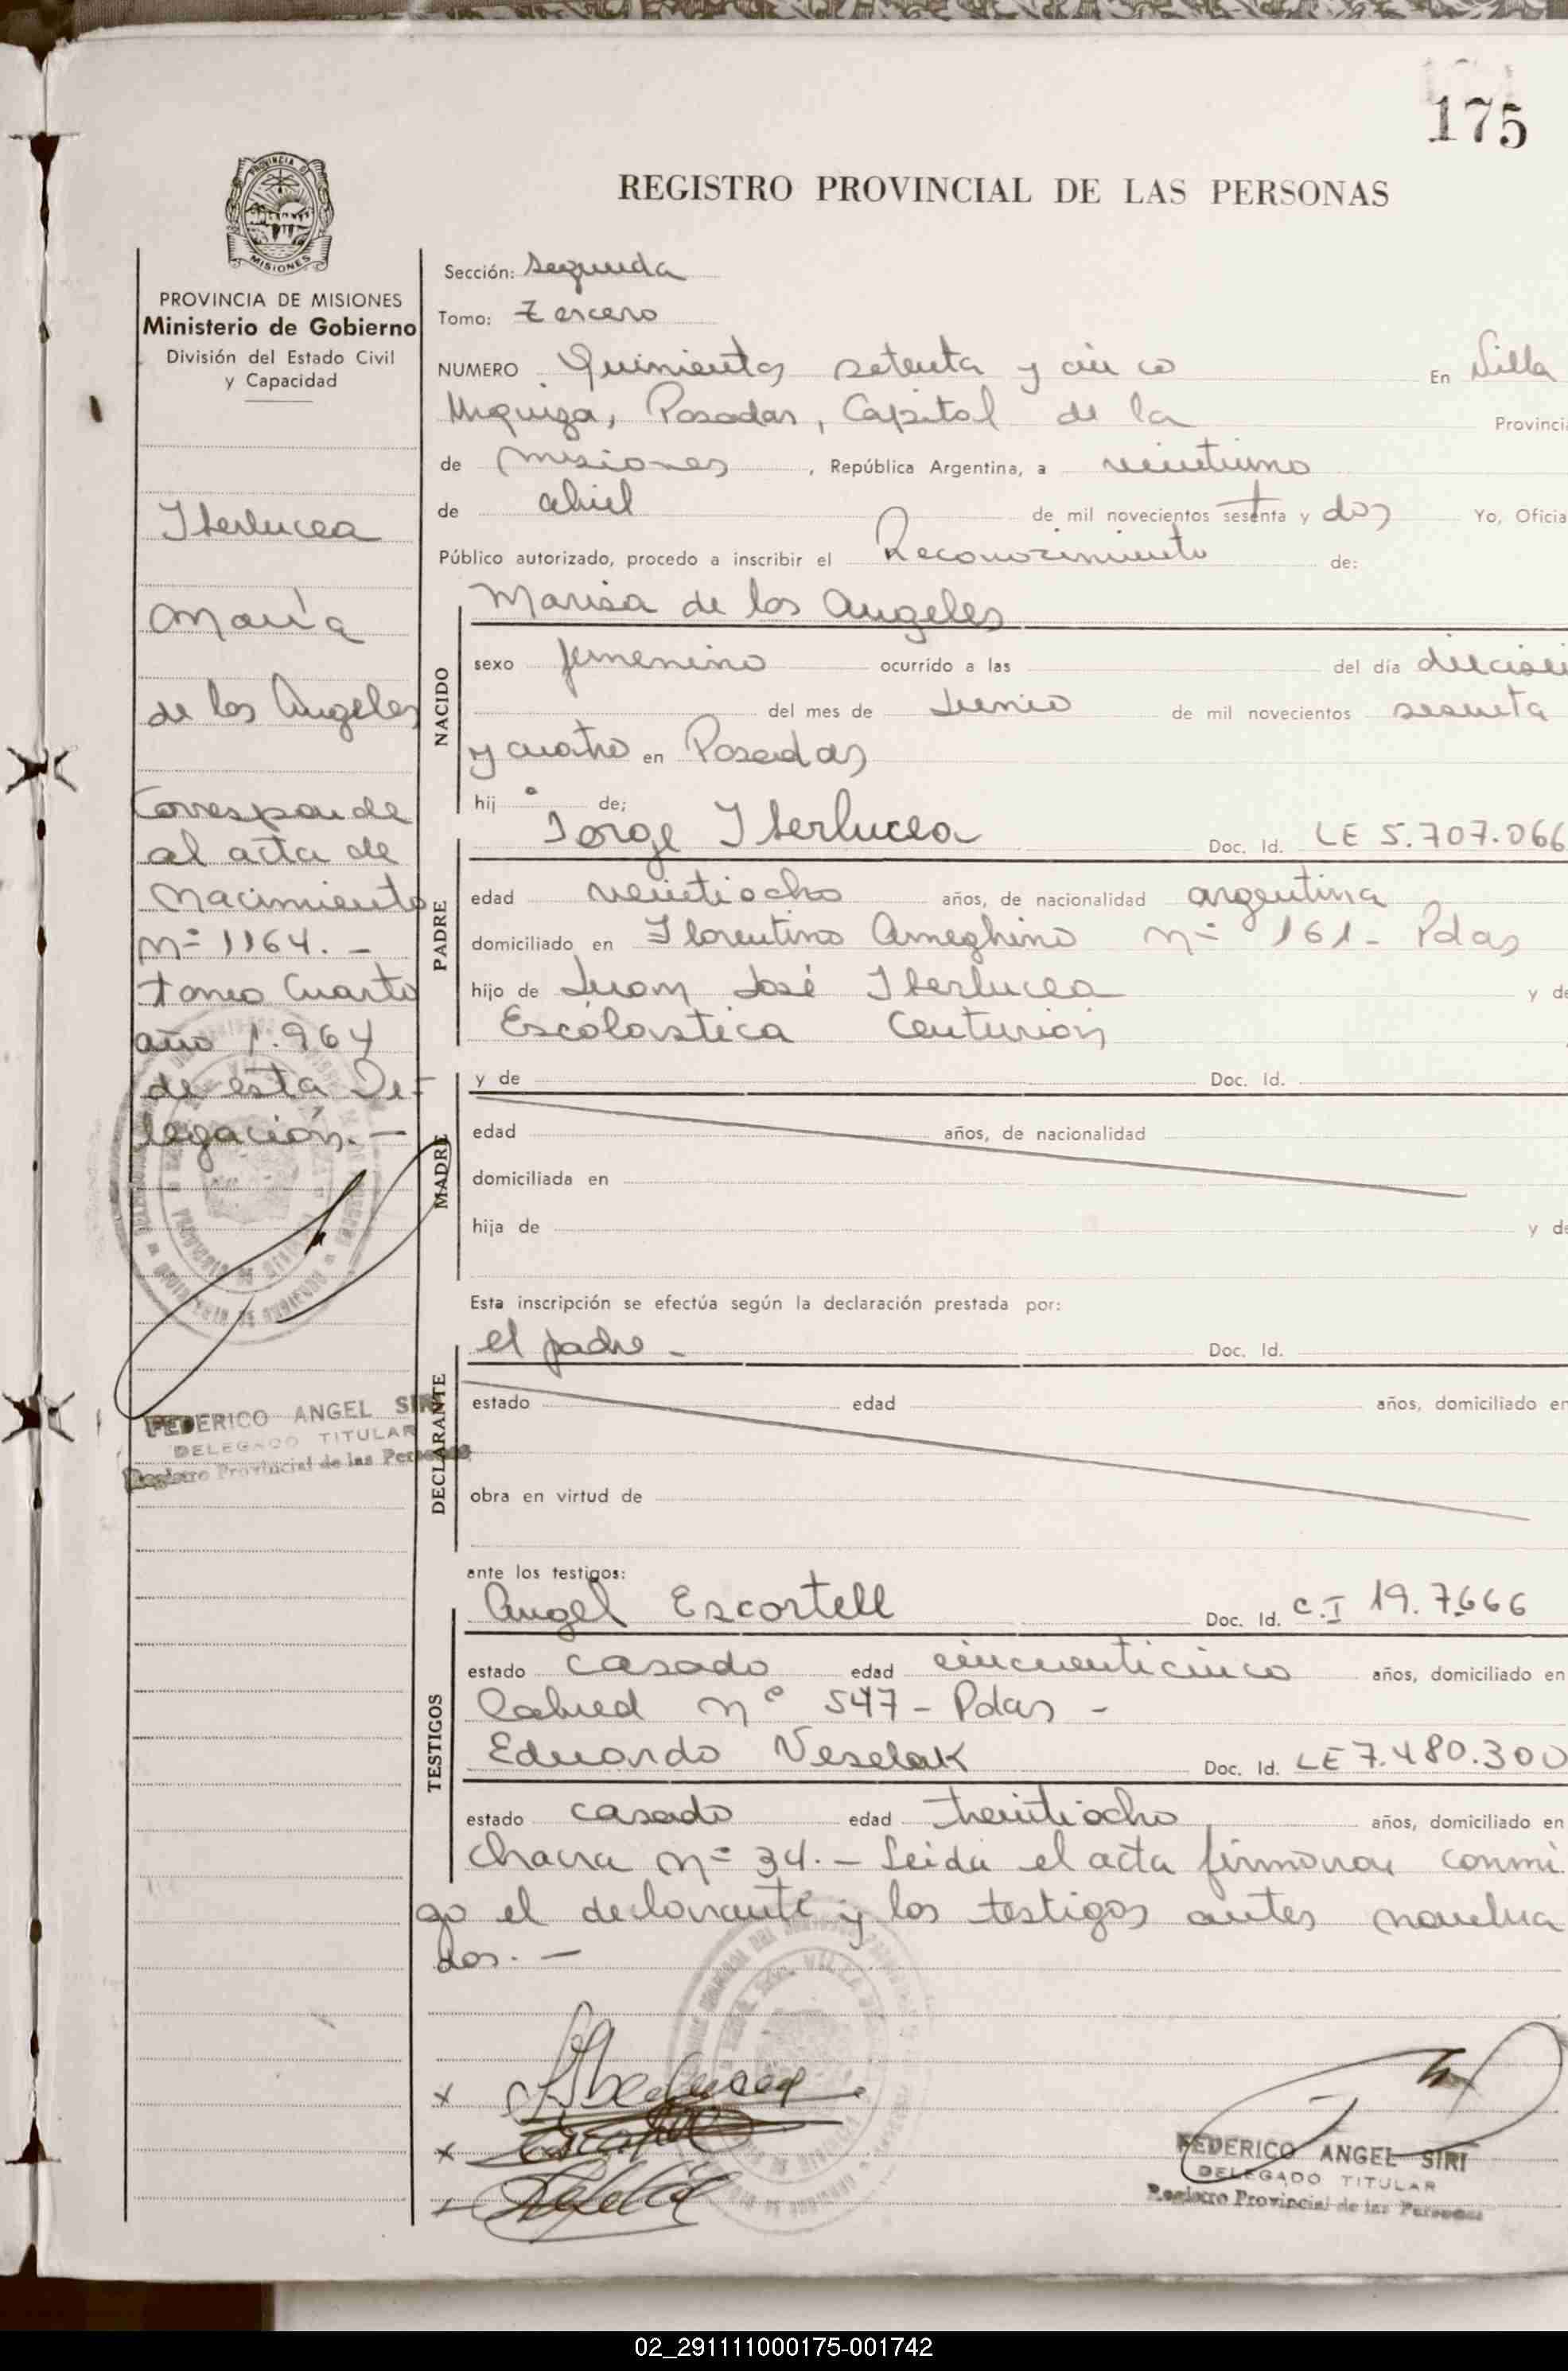 175
REGISTRO PROVINCIAL DE LAS PERSONAS
PROVINCIA DE MISIONES
Ministerio de Gobierno
División del Estado Civil
y Capacidad
Iberlucea
María
de los Angeles
Corresponde
al acta de
Nacimiento
nº 1164. -
tomo Cuarto
año 1.964
de esta De-
legación. -
FEDERICO ANGEL SIRI
DELEGADO TITULAR
Registro Provincial de las Personas
Sección: Segunda
Tomo: Tercero
NUMERO Quinientos setenta y cinco En Villa
Urquiza, Posadas, Capital de la Provinci
de Misiones, República Argentina, a veintiuno
de abril de mil novecientos sesenta y dos Yo, Oficia
Público autorizado, procedo a inscribir el Reconocimiento de:
NACIDO
Marisa de los Angeles
sexo femenino ocurrido a las del día diecisei
del mes de Junio de mil novecientos sesenta
y cuatro en Posadas
hij a de;
PADRE
Jorge Iberlucea Doc. Id. LE 5.707.066
edad veintiocho años, de nacionalidad argentina
domiciliado en Florentino Ameghino nº 161- Pdas
hijo de Juan José Iberlucea y de
Escolástica Centurión
MADRE
y de Doc. Id.
edad años, de nacionalidad
domiciliada en
hija de y de
Esta inscripción se efectúa según la declaración prestada por:
DECLARANTE
el padre - Doc. Id.
estado edad años, domiciliado en
obra en virtud de
ante los testigos:
TESTIGOS
Angel Escortell Doc. Id. C.I 19.7.666
estado casado edad cincuenticinco años, domiciliado en
Cabred nº 547- Pdas -
Eduardo Veselak Doc. Id. LE 7.480.300
estado casado edad treintiocho años, domiciliado en
Chacra nº 34. - Leida el acta firmaron conmi
go el declarante y los testigos antes nombra
dos. -
FEDERICO ANGEL SIRI
DELEGADO TITULAR
Registro Provincial de las Personas
02_291111000175-001742